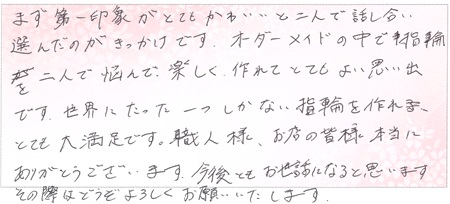 まず第一印象がとてもかわいいと二人で話し合い
選んだのがきっかけです。オーダーメイドの中で指輪
を二人で悩んで、楽しく作れてとてもよい思い出
です。世界にたった一つしかない指輪を作れま、
とても大満足です。職人様、お店の皆様本当に
ありがとうございます。今後ともお世話になると思います
その際はどうぞよろしくお願いいたします。